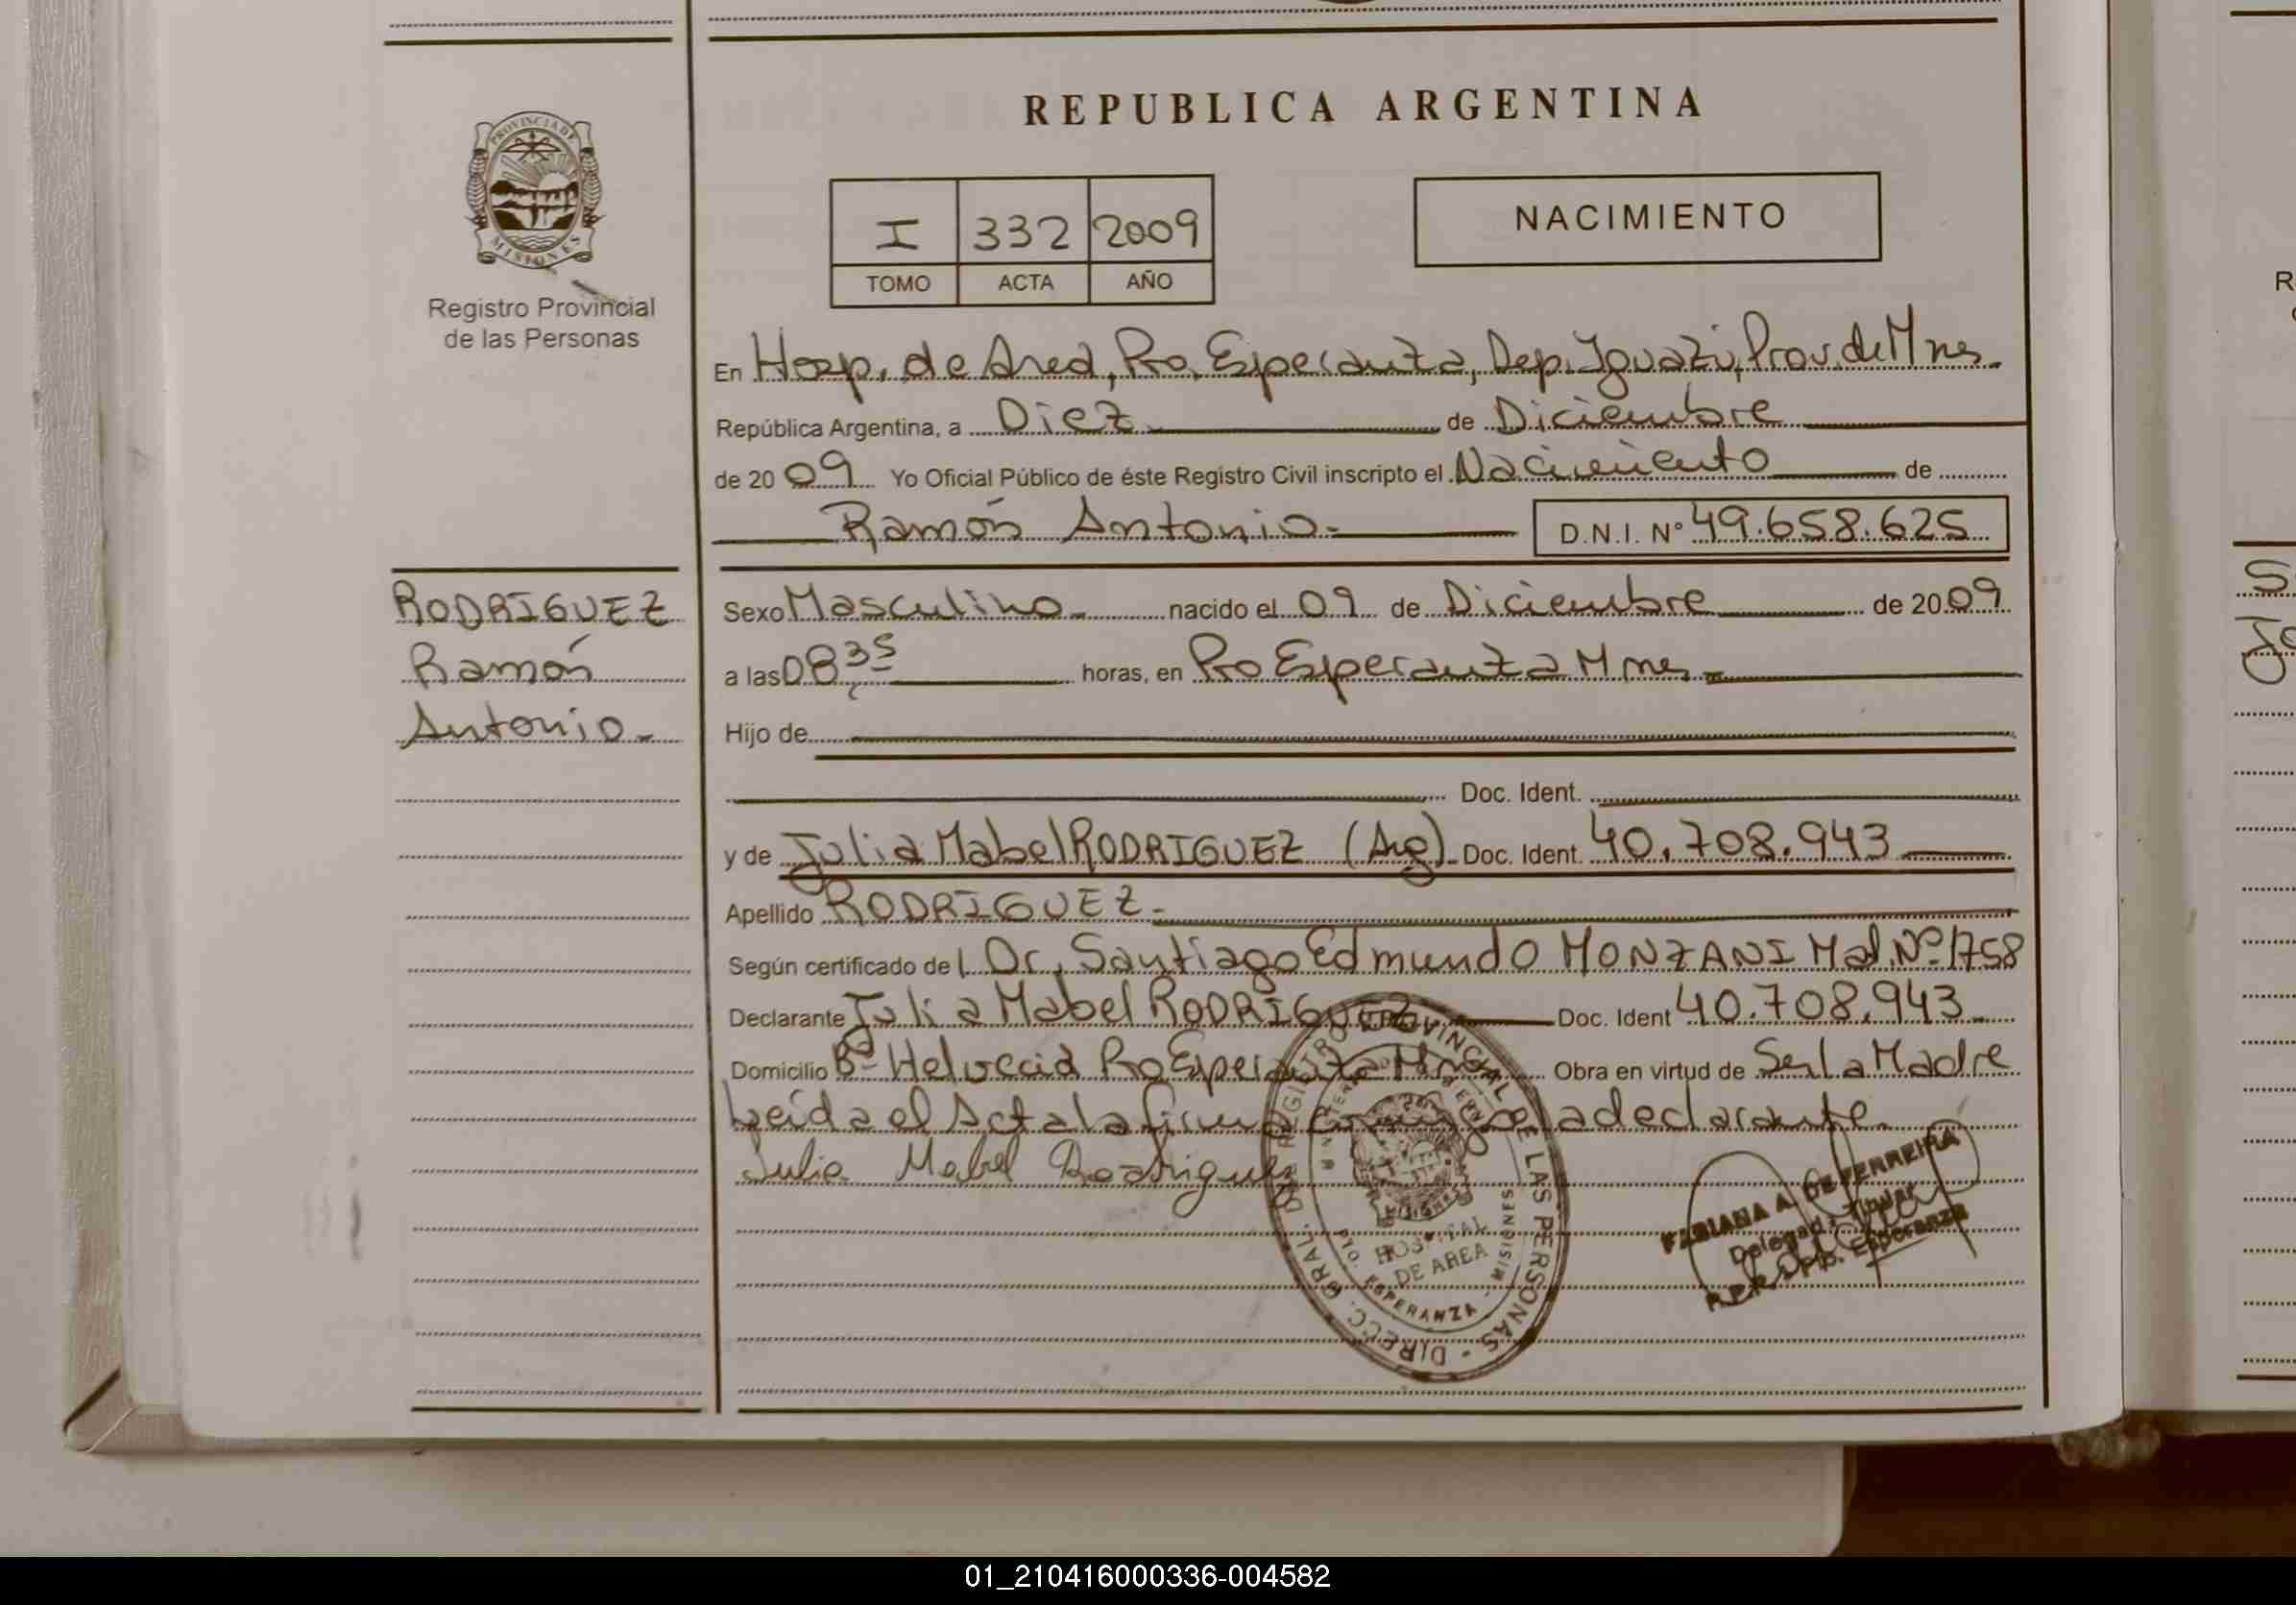 REPUBLICA ARGENTINA
PROVINCIA DE
MISIONES
Registro Provincial
de las Personas
I 332 2009
TOMO ACTA AÑO
NACIMIENTO
En Hosp. de Area, Pto. Esperanza, Dep. Iguazú, Prov. de Mnes.
República Argentina, a Diez.- de Diciembre
de 2009 Yo Oficial Público de éste Registro Civil inscripto el Nacimiento de
Ramón Antonio.- D.N.I. N° 49.658.625
RODRIGUEZ
Ramón
Antonio.-
Sexo Masculino.- nacido el 09 de Diciembre de 2009
a las 08,35 horas, en Pto Esperanza Mnes.-
Hijo de
Doc. Ident.
y de Julia Mabel RODRIGUEZ (Arg).- Doc. Ident. 40.708.943
Apellido RODRIGUEZ.-
Según certificado del Dr. Santiago Edmundo MONZANI Mat. Nº 1758
Declarante Julia Mabel RODRIGUEZ Doc. Ident 40.708.943
Domicilio Bº Helvecia Pto Esperanza Mnes Obra en virtud de Ser la Madre
Leida el Acta la firma conmigo la declarante.
Julia Mabel Rodriguez
DIRECC. GRAL. DEL REGISTRO PROVINCIAL DE LAS PERSONAS
HOSPITAL
DE AREA
PTO. ESPERANZA - MISIONES
FABIANA A. DE FERREIRA
Delegada Titular
R.P.P. Pto. Esperanza
S
Jo
R
01_210416000336-004582